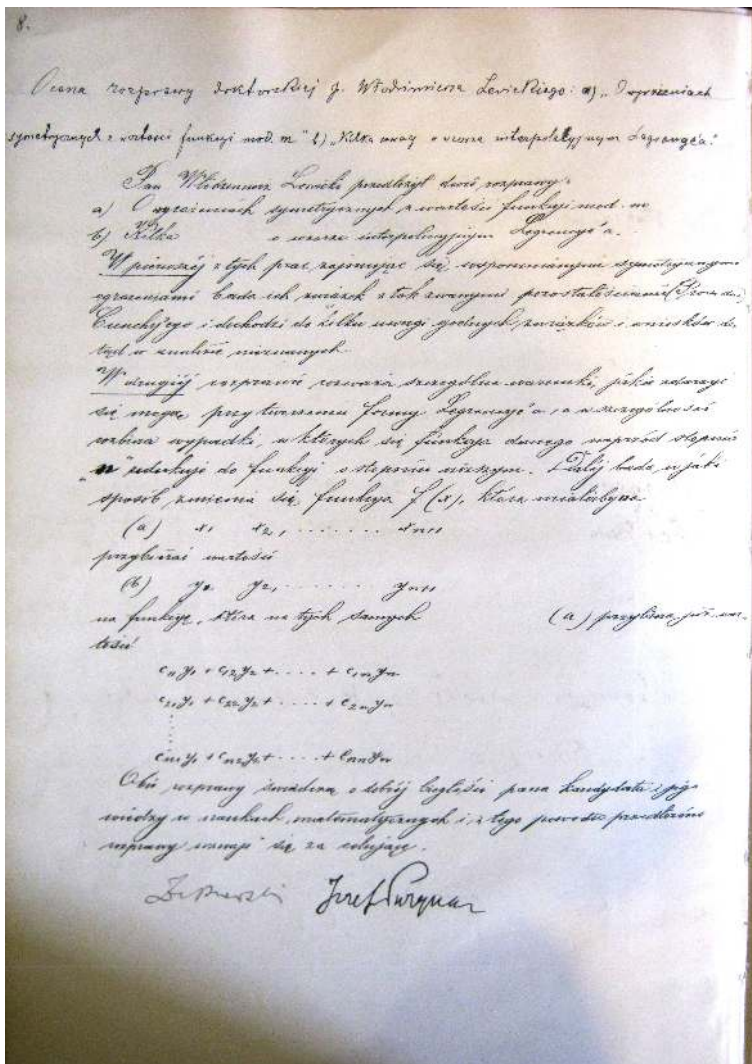 8.
Ocena rozprawy doktorskiej p. Włodzimierza Lewickiego: a) „O wyrażeniach
symetrycznych z wartości funkcyi mod. m" b) „Kilka uwag o wzorze interpolacyjnym Lagrange'a."
Pan Włodzimierz Lewicki przedłożył dwie rozprawy:
a) O wyrażeniach symetrycznych z wartości funkcyi mod. m
b) Kilka o wzorze interpolacyjnym Lagrange'a.
W pierwszéj z tych prac zajmując się wspomnianymi symetrycznymi
wyrażeniami bada ich związek z tak zwanymi pozostałościami
Cauchy'ego i dochodzi do kilku uwagi godnych związków i wniosków do-
tąd w analizie nieznanych.
W drugiéj rozprawie rozważa szczególne warunki, jakie zdarzyć
się mogą przy tworzeniu formy Lagrange'a, a w szczególności
rozbiera wypadki, w których się funkcya danego naprzód stopnia
„n" redukuje do funkcyi o stopniu niższym. Daléj bada, w jaki
sposób zmienia się funkcya f(x), która
(a) x₁ x₂, ........ xₙ₊₁
przybierać wartości
(b) y₁ y₂, ........ yₙ₊₁
na funkcyę, która na tych samych (a) przybiera już war-
tości
c₁₁y₁ + c₁₂y₂ + ..... + c₁ₙyₙ
c₂₁y₁ + c₂₂y₂ + ..... + c₂ₙyₙ
cₙ₁y₁ + cₙ₂y₂ + ..... + cₙₙyₙ
Obie rozprawy świadczą o dobréj biegłości pana kandydata i jego
wiedzy w naukach matematycznych i z tego powodu przedłożone
rozprawy uznaje się za celujące.
Żmurko Józef Puzyna